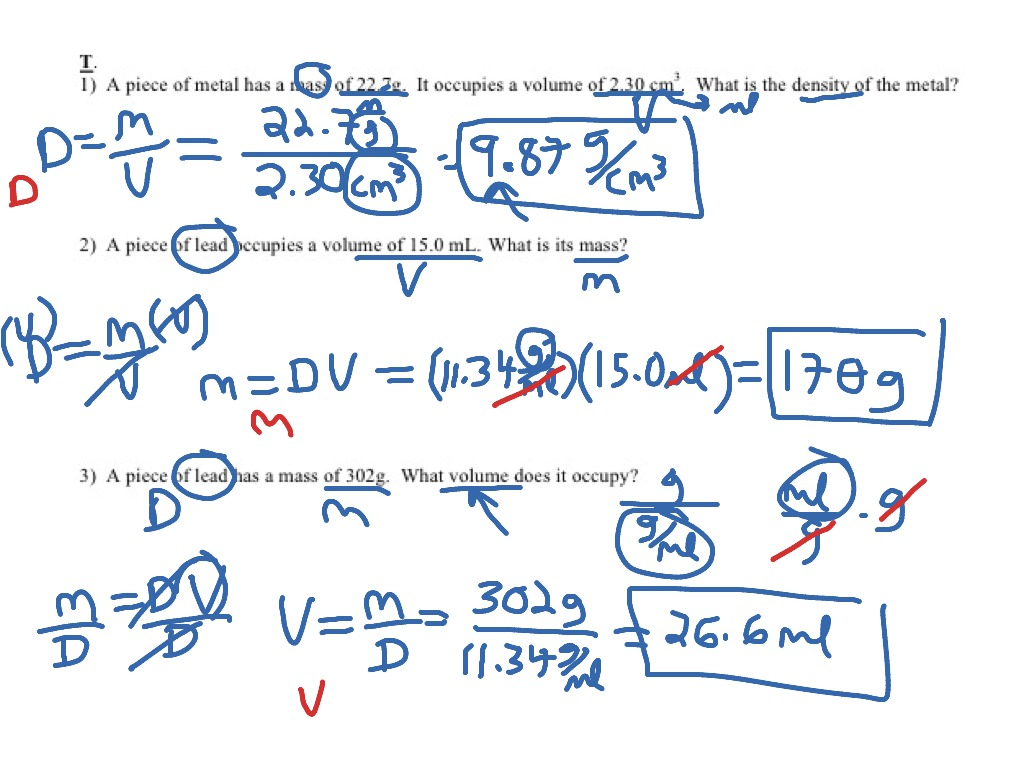 T.
1) A piece of metal has a mass of 22.7g. It occupies a volume of 2.30 cm³. What is the density of the metal?
m V → ml
D = m/V = 22.7 g / 2.30 cm³ = 9.87 g/cm³
D
2) A piece of lead occupies a volume of 15.0 mL. What is its mass?
V m
(V) D = m/V (V)
m = DV = (11.34 g/ml)(15.0 ml) = 170 g
m
3) A piece of lead has a mass of 302g. What volume does it occupy?
D m g / g/ml ml/g · g
m/D = DV/D V = m/D = 302g / 11.34 g/ml = 26.6 ml
V